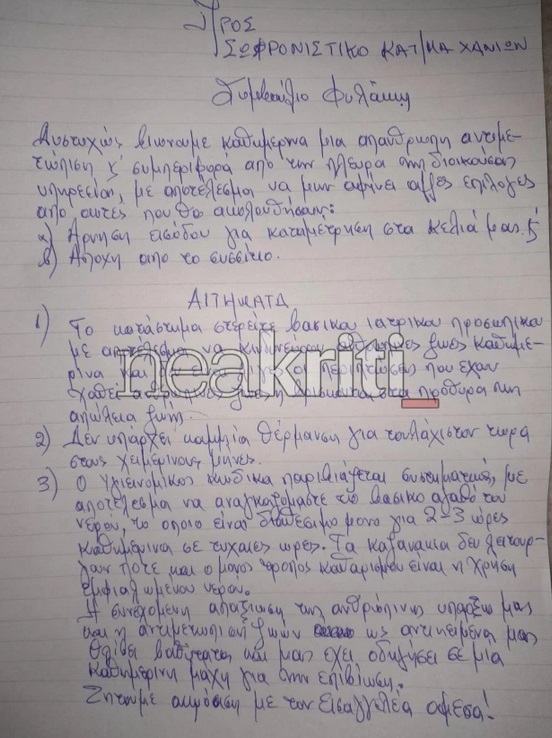 Προς
ΣΩΦΡΟΝΙΣΤΙΚΟ ΚΑΤ/ΜΑ ΧΑΝΙΩΝ
Συμβούλιο Φυλακης
Δυστυχώς βιωνουμε καθημερινα μια απανθρωπη αντιμε-
τώπιση ς' συμπεριφορά από την πλευρα της διοικούσας
υπηρεσίας, με αποτέλεσμα να μην αφήνει αλλες επιλογες
απο αυτες που θα ακολουθήσουν:
α) Αρνηση εισόδου για καταμέτρηση στα κελιά μας ς'
β) Αποχη απο το συσσίτιο.
ΑΙΤΗΜΑΤΑ
1) Το κατάστημα στερείτε βασικου ιατρικου προσωπικου
με αποτέλεσμα να κινδυνεύουν ζωες καθημε-
ρινα και περιπτώσεις που εχαν
neakriti_
χαθεί στα πρόθυρα της
απώλεια ζωής.
2) Δεν υπάρχει καμμία θέρμανση για τουλάχιστον τωρα
στους χειμερινους μηνες.
3) Ο υγειονομικος κωδικα παραβιάζεται συστηματικά, με
αποτέλεσμα να αναγκαζομαστε το βασικο αγαθο του
νερου, το οποιο είναι διαθέσιμο μονο για 2-3 ώρες
καθημερινα σε τυχαιες ωρες. Τα καζανακια δεν λειτουρ-
γαν ποτε και ο μονος τροπος καθαρισμου ειναι η χρηση
εμφιαλωμενου νερου.
Η συνεχομενη απαξιωση της ανθρώπινης υπαρξης μας
και η αντιμετωπιση ζωων ως αντικειμενα μας
θλιβει βαθύτατα και μας εχει οδηγησει σε μια
καθημερινη μαχη για την επιβίωση.
Ζητουμε ακρόαση με τον Εισαγγελέα αμεσα!